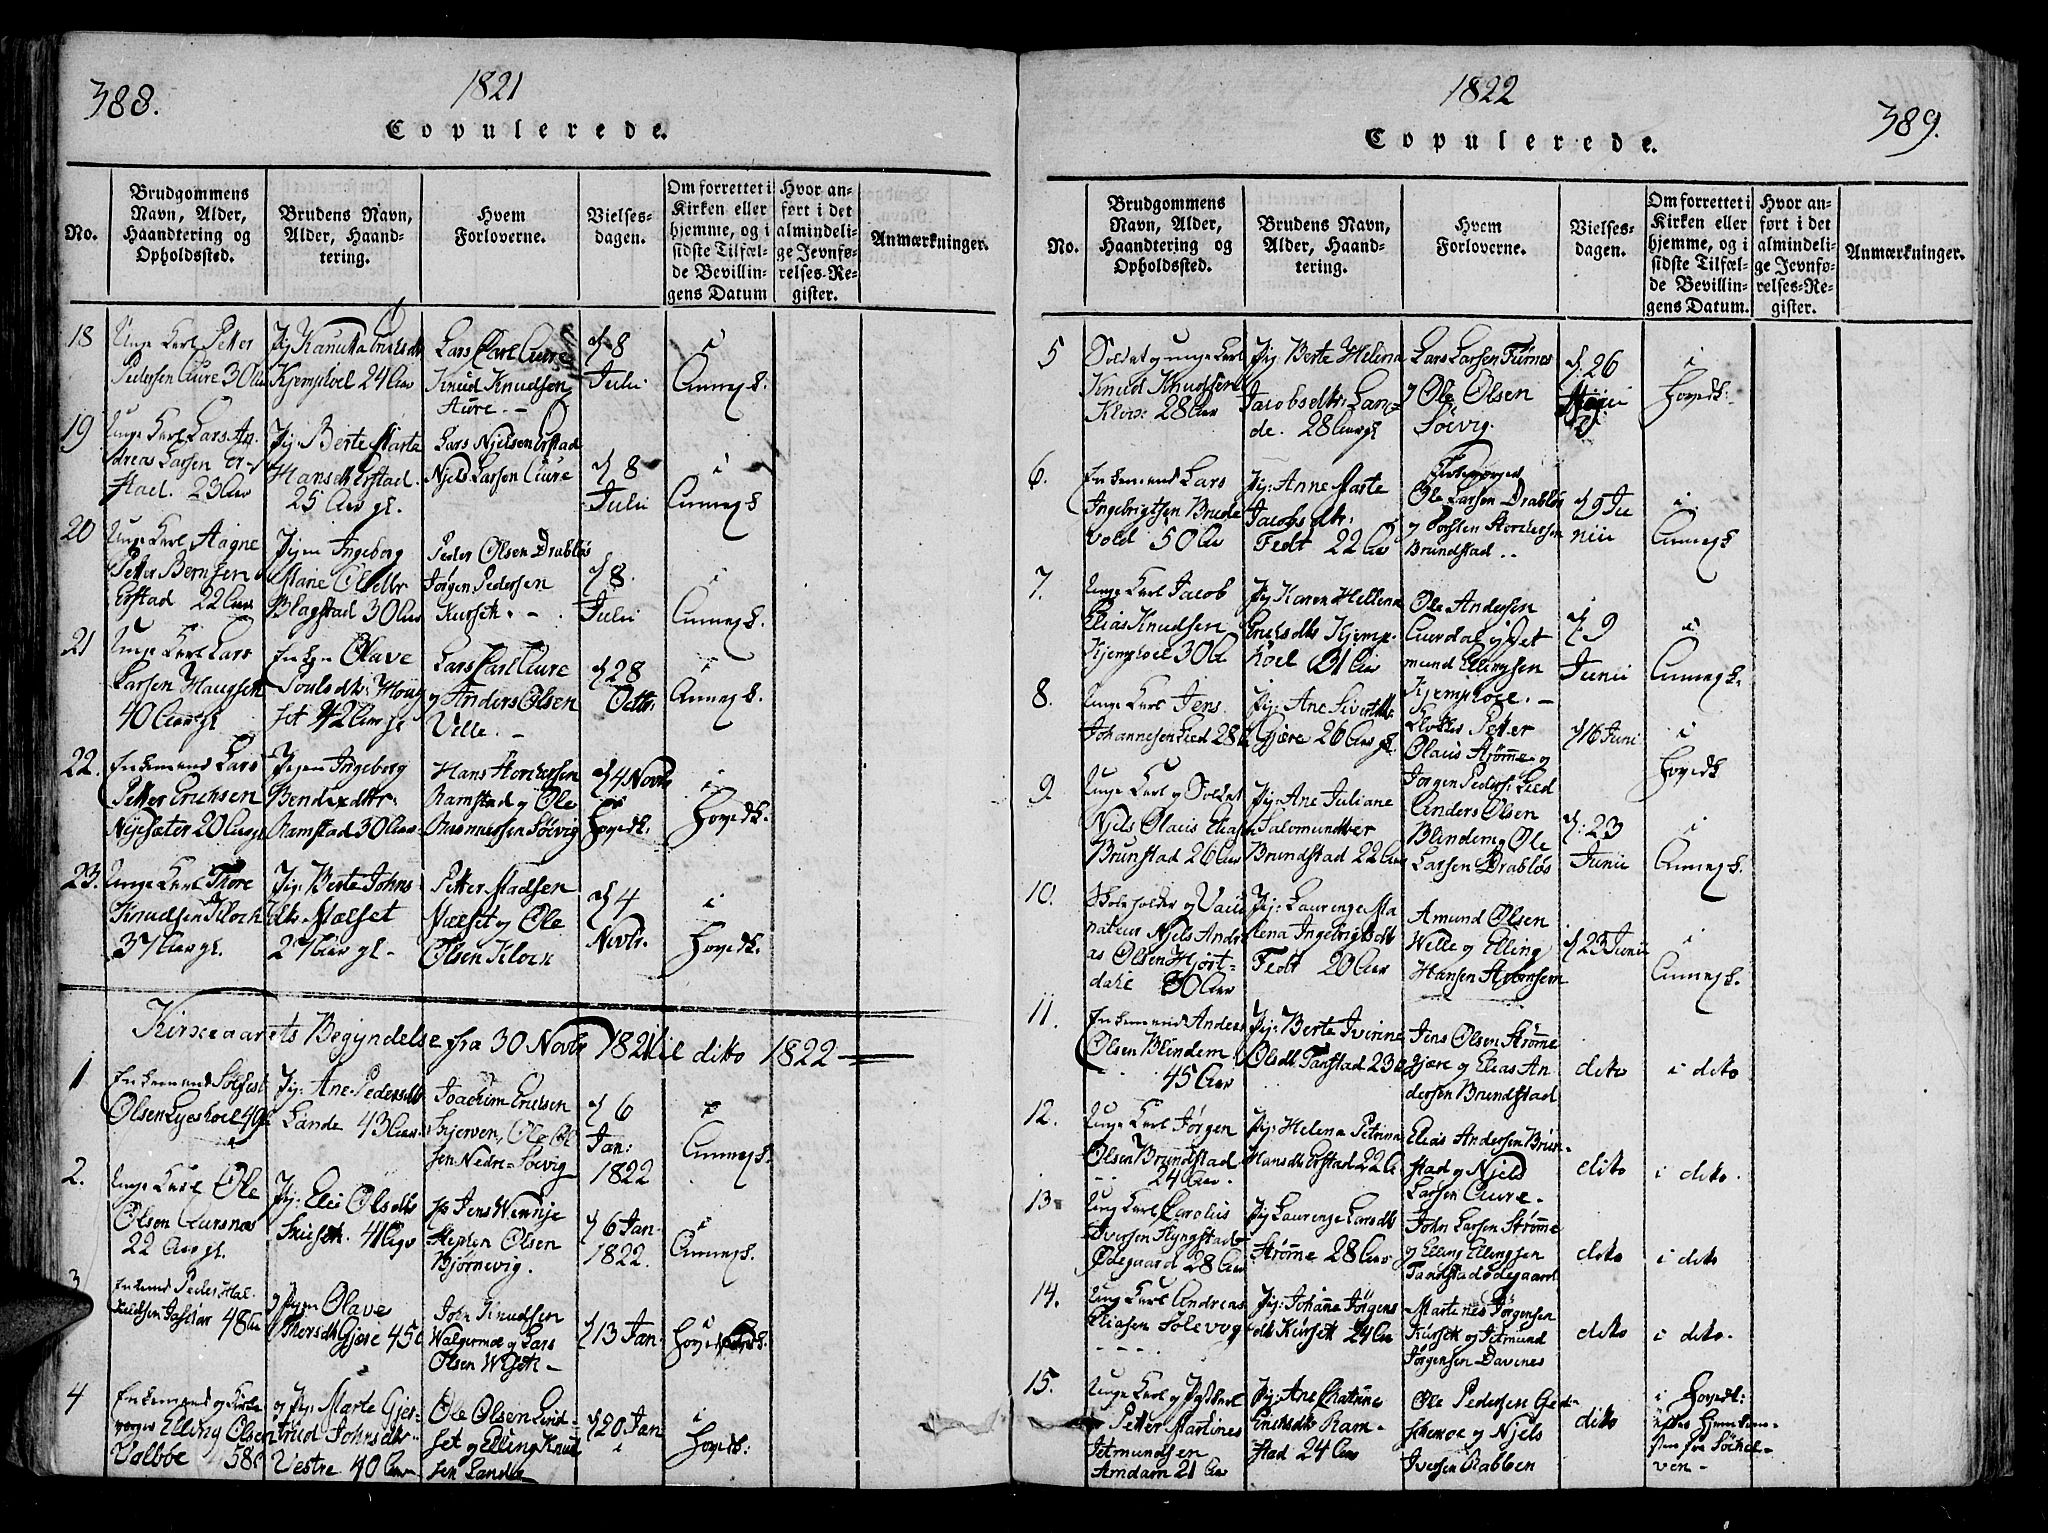 388.
1821
Copulerede.
No.
Brudgommens Navn, Alder, Haandtering og Opholdssted.
Brudens Navn, Alder, Haandtering.
Hvem Forloverne.
Vielsesdagen.
Om forrettet i Kirken eller hjemme, og i sidste Tilfælde Bevillingens Datum
Hvor anført i det almindelige Jevnførelses-Register.
Anmærkninger.
18
Unge Karl Petter
Pedersen Aure 30
Kjemphoel 24 Aar
Lars Carl Aure
Knud Knudsen
Aure. –
8
Julii
i
Annex k.
19
Unge Karl Lars An-
dreas Larsen Er-
stad. 23 Aar
Pig: Berte Marta
Hansdt Erstad.
25 Aar gl.
Lars Njelsen Erstad
Njels Larsen Aure
8
Julii
i
Annex k
20
Unge Karl Aagne
Petter Bernsen
Erstad 22 Aar
Pigen Ingeborg
Marie
Blagstad 30 Aar
Peder Olsen Drabløs
Jørgen Pedersen
Kursetk. –
8.
Julii
i
Annex k.
21
Unge Karl Lars
Larsen Haugsett
40 Aar gl
Enken Olave
Poulsdtr: Moug
set 42 Aar gl
Lars Carl Aure
og Anders Olsen
Velle. –
28
Octbr.
i
Annex k.
22.
Enkemand Lars
Petter Erichsen
Nysæter 20 Aar gl
Pigen Ingeborg
Bendixdtr.
Ramstad 30 Aar
Hans
Ramstad og Ole
Rasmussen Søevig
4 Novbr
Hovedk.
i
Hovedk.
23.
Unge Karl Thore
Knudsen Klock
37 Aar gl.
Pig: Berte Johns
dtr. Mælset
27 Aar gl –
Petter Madsen
Mælset og Ole
Olsen Klock
4
Novbr.
i
Hovedk.
Kirkeaarets Begyndelse fra 30 Novbr 1821 til ditto 1822
1
Enkemand
Olsen 49
Pig: Ane Pedersdtr
Lande 43 Aar
Joachim Ericksen
Skjerven, Ole Ol
sen Nedre-Søevig
6
Jan:
1822
i
Annex k.
2.
Unge Karl Ole
Olsen Aursnes
22 Aar gl.
Pig: Eli Olsdtr
41
Hr Jens Wennje
Stephen Olsen
Bjørnevig.
6 Jan
1822.
i
Annex k.
3
Enkemand Peder Hal-
48 Aar
og Pigen Olave
Gjære 45
John Knudsen
Walgermoe og Lars
Olsen
13 Jan
i
Hovedk.
4
Enkemand og Kirke
værger Elling Olsen
Valbøe 58
og Pig: Marte Gjer-
trud Johnsdtr.
Vestre 40 Aar
Ole Olsen Lind-
set og Elling Knud
sen Lande
20 Jan
i
Hovedk:
1822
389.
Copulerede.
No.
Brudgommens Navn, Alder, Haandtering og Opholdssted.
Brudens Navn, Alder, Haandtering.
Hvem Forloverne.
Vielsesdagen.
Om forrettet i Kirken eller hjemme, og i sidste Tilfælde Bevillingens Datum.
Hvor anført i det almindelige Jevnførelses-Register.
Anmærkninger.
5
Soldat og unge Karl
Knud Knudsen
Klock 28 Aar
Pig: Berte Helena
Jacobsdtr: Lan-
de. 28 Aar gl
Lars Larsen Furnes
og Ole Olsen
Søevig.
26
i
Hovedk:
6.
Enkemand Lars
Ingebrigtsen Brude
vold 50 Aar
Pig: Anne Marte
Jacobsdtr:
Fedt 22 Aar
Kirkeværger
Ole Larsen Drabløs
og Torsten
Brundstad. –
9 Ju
nii
i
Annex k
7.
Unge Karl Jacob
Elias Knudsen
Kjemphoel 30 Aar
Pig Karen Hellena
Ericksdtr Kjemp-
hoel 31 Aar
Ole Andersen
Aurdal og Jet
mund Ellingsen
Kjemphoel. –
9
Junii
i
Annex k.
8.
Unge Karl Jens
Johannesen Lied 28
Pig: Ane Sivertdtr.
Gjære 26 Aar gl.
Klokker Petter
Olaus Strømme og
Jørgen Peders: Lied
16 Juni
i
Hovedk
9
Unge Karl og Soldat
Njels Olaus Eliasen
Brunstad 26 Aar
Pig: Ane Juliane
Salomundtter
Brundstad 22 Aar
Anders Olsen
Blindem og Ole
Larsen Drabløs
23
Junii
i
Annex k.
10.
Skoleholder og Vacci
nateur Njels Andre
as Olsen Hjort-
dahl 30 Aar
Pig: Laurenze Ma
lena Ingebrigtsdtr
Fedt 20 Aar
Amund Olsen
Welle og Elling
Hansen Aronsem
23 Junii
i
Annex k.
11.
Enkemand Anders
Olsen Blindem
45 Aar
Pig: Berte Iverine
Olsdt Tanstad 23
Jens Olsen Strømme
gjære og Elias An
dersen Brundstad
dito
i dito
12.
Unge Karl Jørgen
Olsen Brundstad
24 Aar
Pig: Helena Petrina
Hansdtr Erstad 22
Elias Andersen Brun-
stad og Njels
Larsen Aure –
dito
i dito.
13.
Ung Karl Carolus
Iversen Flyngstad-
Ødegaard 28 Aar
Pig Laurenze Larsdtr
Strømme 28 Aar
John Larsen Strømme
og Elling Ellingsen
Tandstadødegaard
dito
i dito
14.
Ung Karl Andreas
Eliasen Solevog
Pig: Johanne Jørgens
dtr Kursetk 24 Aar
Martenes Jørgensen
Kursetk og Jetmund
Jørgensen Davenes
dito
i dito.
15.
Unge Karl og
Petter Martines
Jetmundsen
Amdam 21 Aar
Pig: Ane Chatrine
Ericksdtr Ram-
stad 24 Aar
Ole Pedersen Ged-
schenoe og Njels
Iversen Rabben
dito
i Hovedk: